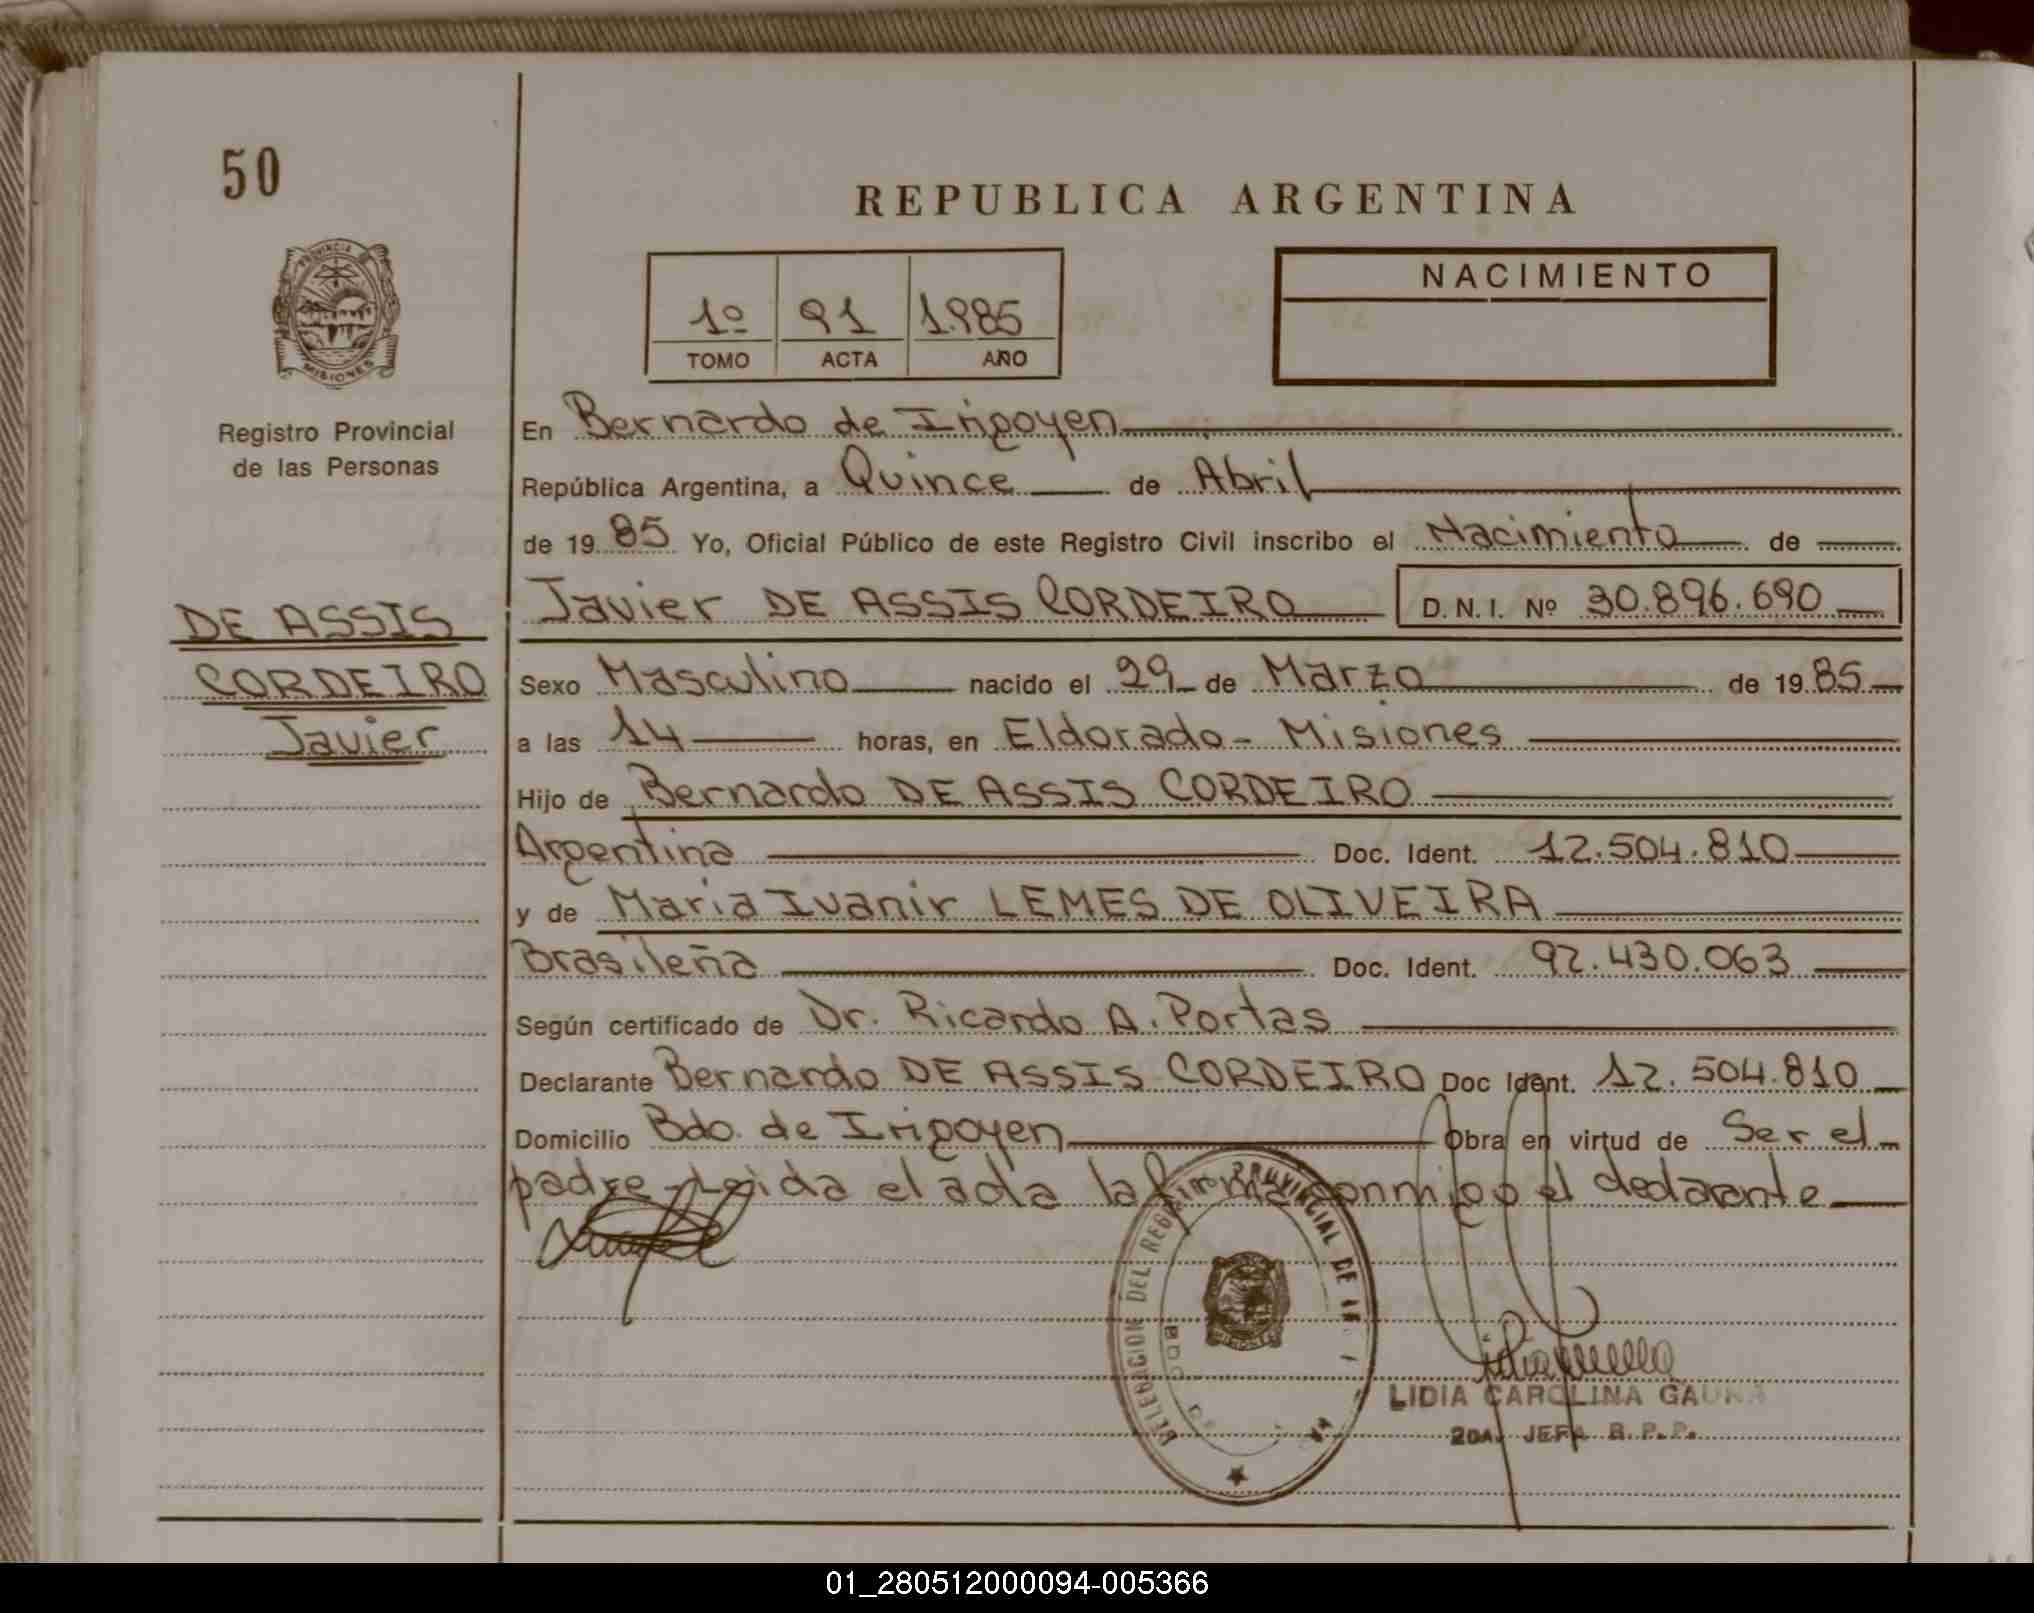 50
REPUBLICA ARGENTINA
PROVINCIA DE
MISIONES
Registro Provincial
de las Personas
NACIMIENTO
1º 91 1.985
TOMO ACTA AÑO
En Bernardo de Irigoyen
República Argentina, a Quince de Abril
de 19 85 Yo, Oficial Público de este Registro Civil inscribo el Nacimiento de
Javier DE ASSIS CORDEIRO D.N.I. Nº 30.896.690
DE ASSIS
CORDEIRO
Javier
Sexo Masculino nacido el 29 de Marzo de 19 85
a las 14 horas, en Eldorado - Misiones
Hijo de Bernardo DE ASSIS CORDEIRO
Argentina Doc. Ident. 12.504.810
y de Maria Ivanir LEMES DE OLIVEIRA
Brasileña Doc. Ident. 92.430.063
Según certificado de Dr. Ricardo A. Portas
Declarante Bernardo DE ASSIS CORDEIRO Doc Ident. 12.504.810
Domicilio Bdo. de Irigoyen Obra en virtud de Ser el
padre - Leida el acta la firma conmigo el declarante
DELEGACION DEL REGISTRO PROVINCIAL DE
BDO DE
LIDIA CAROLINA GAUNA
2DA. JEFA R.P.P.
01_280512000094-005366